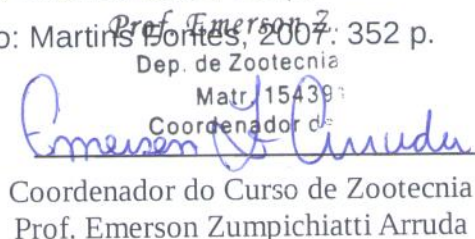 Prof. Emerson Z.
o: Martins Fontes, 2007. 352 p.
Dep. de Zootecnia
Matr. 15439
Coordenador de
Emerson Z Arruda
Coordenador do Curso de Zootecnia
Prof. Emerson Zumpichiatti Arruda